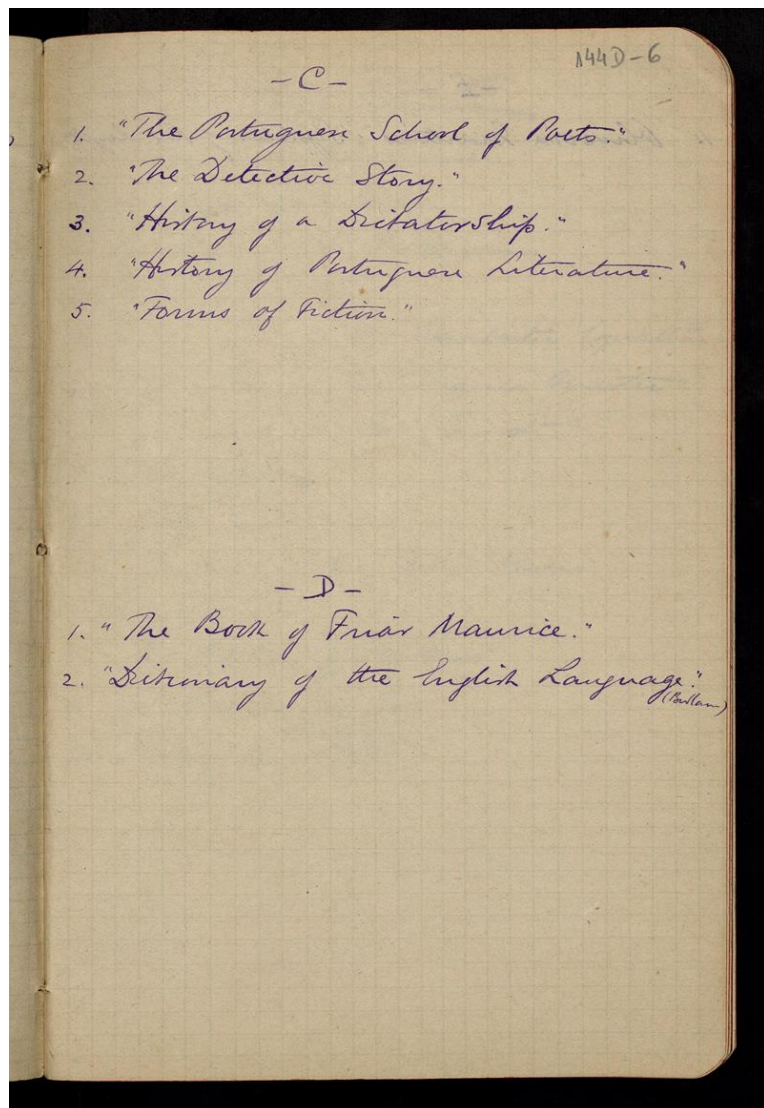 144D-6
- C -
1. "The Portuguese School of Poets."
2. "The Detective Story."
3. "History of a Dictatorship."
4. "History of Portuguese Literature."
5. "Forms of Fiction."
- D -
1. "The Book of Friar Maurice."
2. "Dictionary of the English Language."